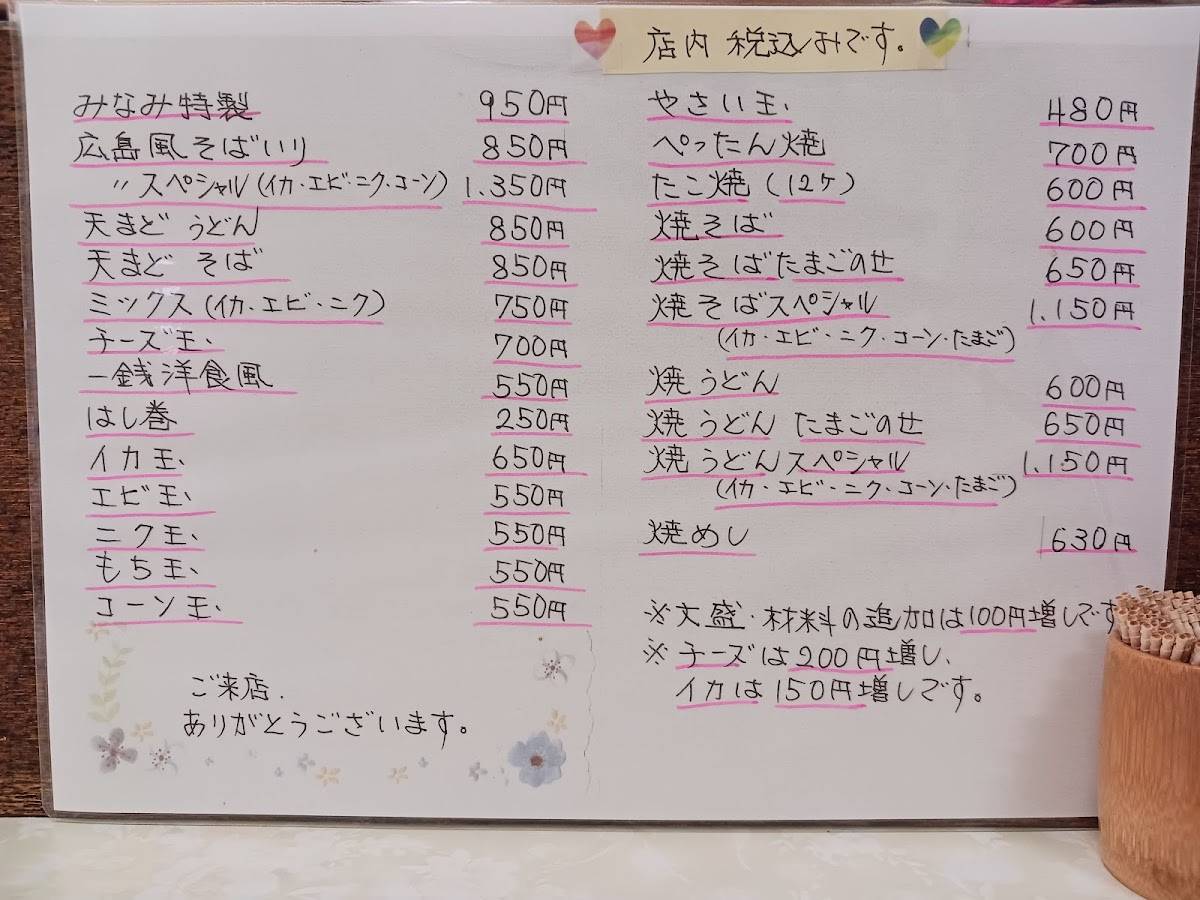 店内 税込みです。
みなみ特製 950円
広島風そばいり 850円
〃 スペシャル(イカ・エビ・ニク・コーン) 1.350円
天まど うどん 850円
天まど そば 850円
ミックス(イカ・エビ・ニク) 750円
チーズ玉、 700円
一銭洋食風 550円
はし巻 250円
イカ玉、 650円
エビ玉、 550円
ニク玉、 550円
もち玉、 550円
コーン玉、 550円
ご来店.
ありがとうございます。
やさい玉、 480円
ぺったん焼 700円
たこ焼(12ケ) 600円
焼そば 600円
焼そばたまごのせ 650円
焼そばスペシャル 1.150円
(イカ・エビ・ニク・コーン・たまご)
焼うどん 600円
焼うどん たまごのせ 650円
焼うどんスペシャル 1.150円
(イカ・エビ・ニク・コーン・たまご)
焼めし 630円
※大盛・材料の追加は100円増しです
※チーズは200円増し、
イカは150円増しです。